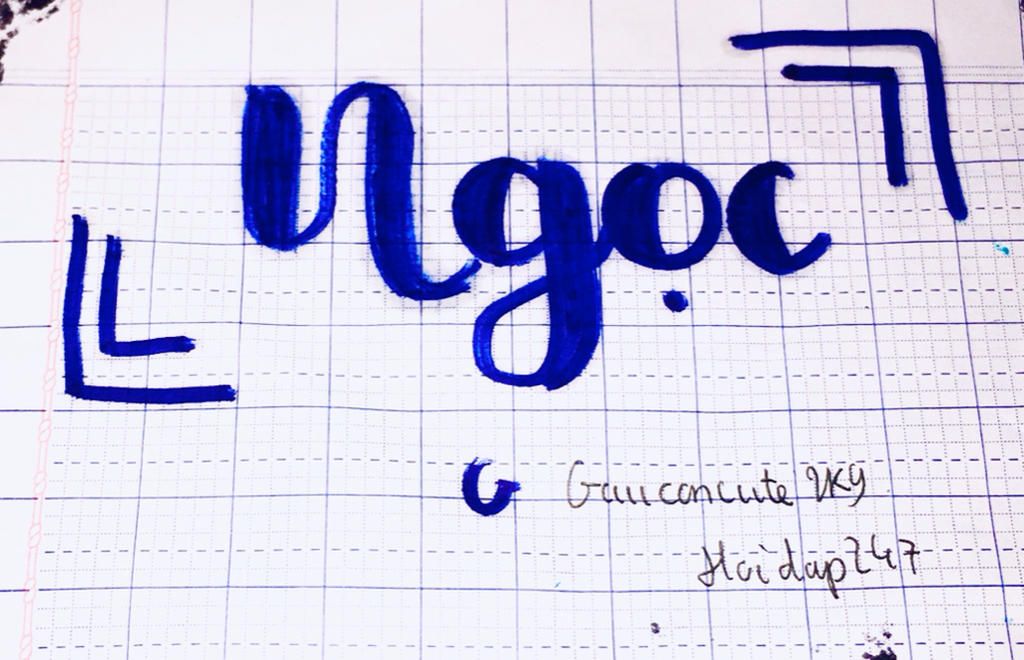 Ngọc
G Gauconcute 2K9
Hoidap247